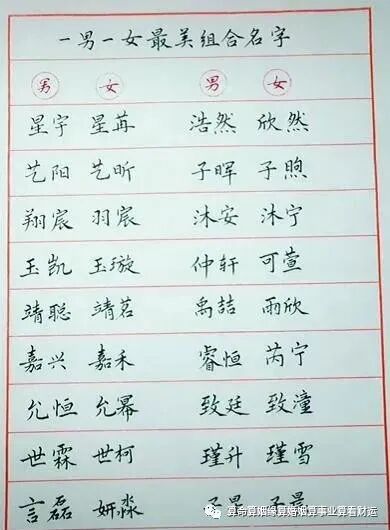 一男一女最美组合名字
男 女 男 女
星宇 星苒 浩然 欣然
艺阳 艺昕 子晖 子煦
翔宸 羽宸 沐安 沐宁
玉凯 玉璇 仲轩 可萱
靖聪 靖茗 禹喆 雨欣
嘉兴 嘉禾 睿恒 芮宁
允恒 允幂 致廷 致潼
世霖 世柯 瑾升 瑾雪
言磊 妍淼
算命算姻缘算婚姻算事业算看财运